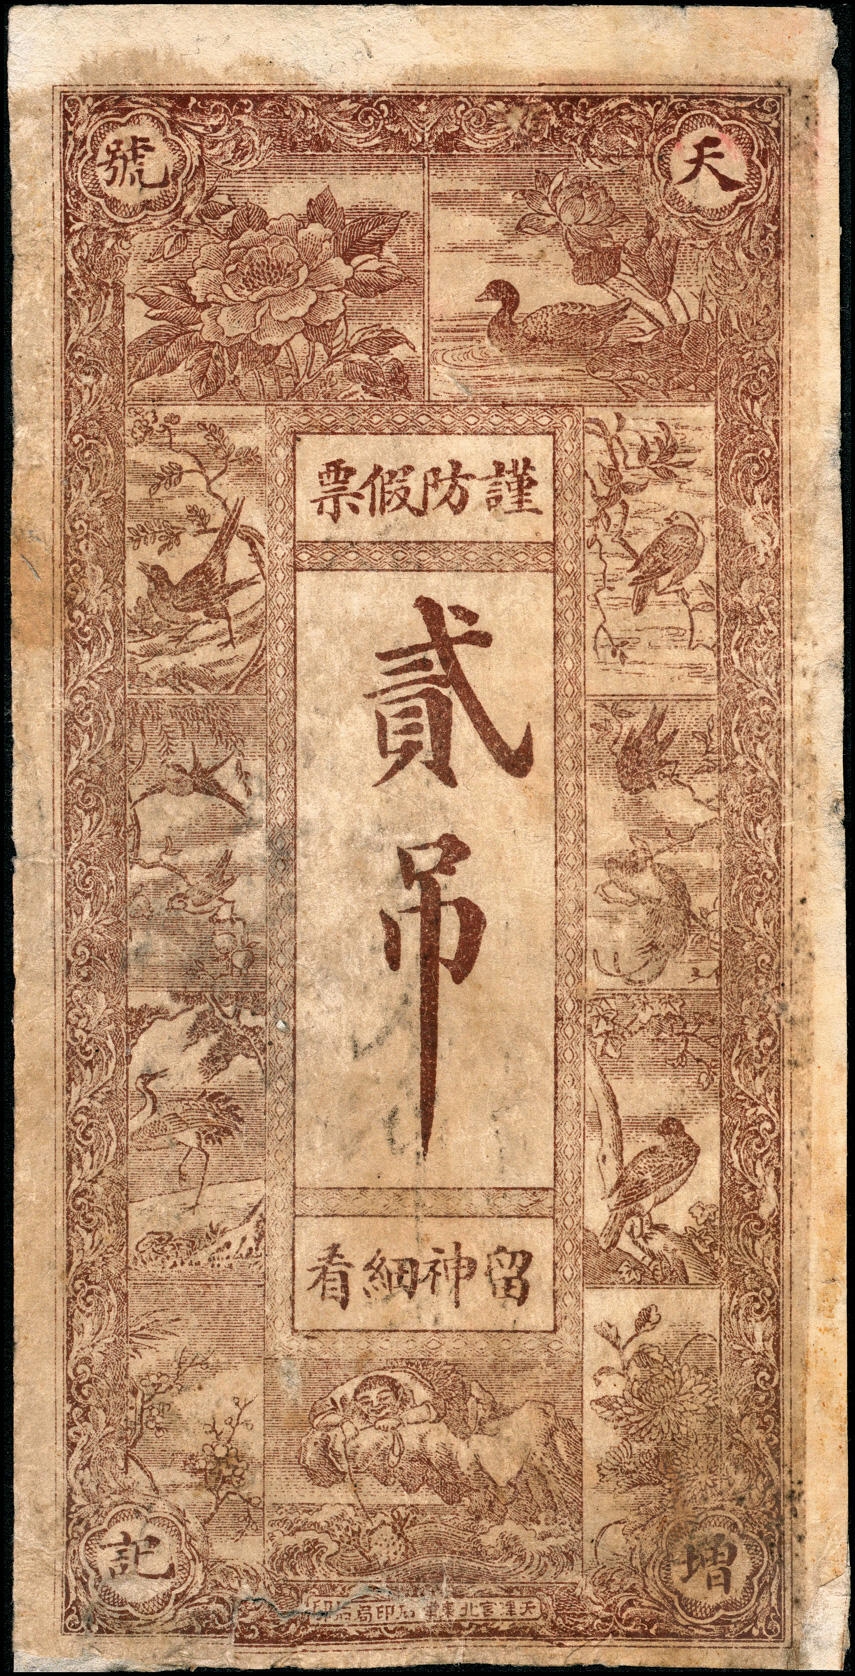 天
號
謹防假票
貳吊
留神細看
增
記
天津宮北東華石印局石印